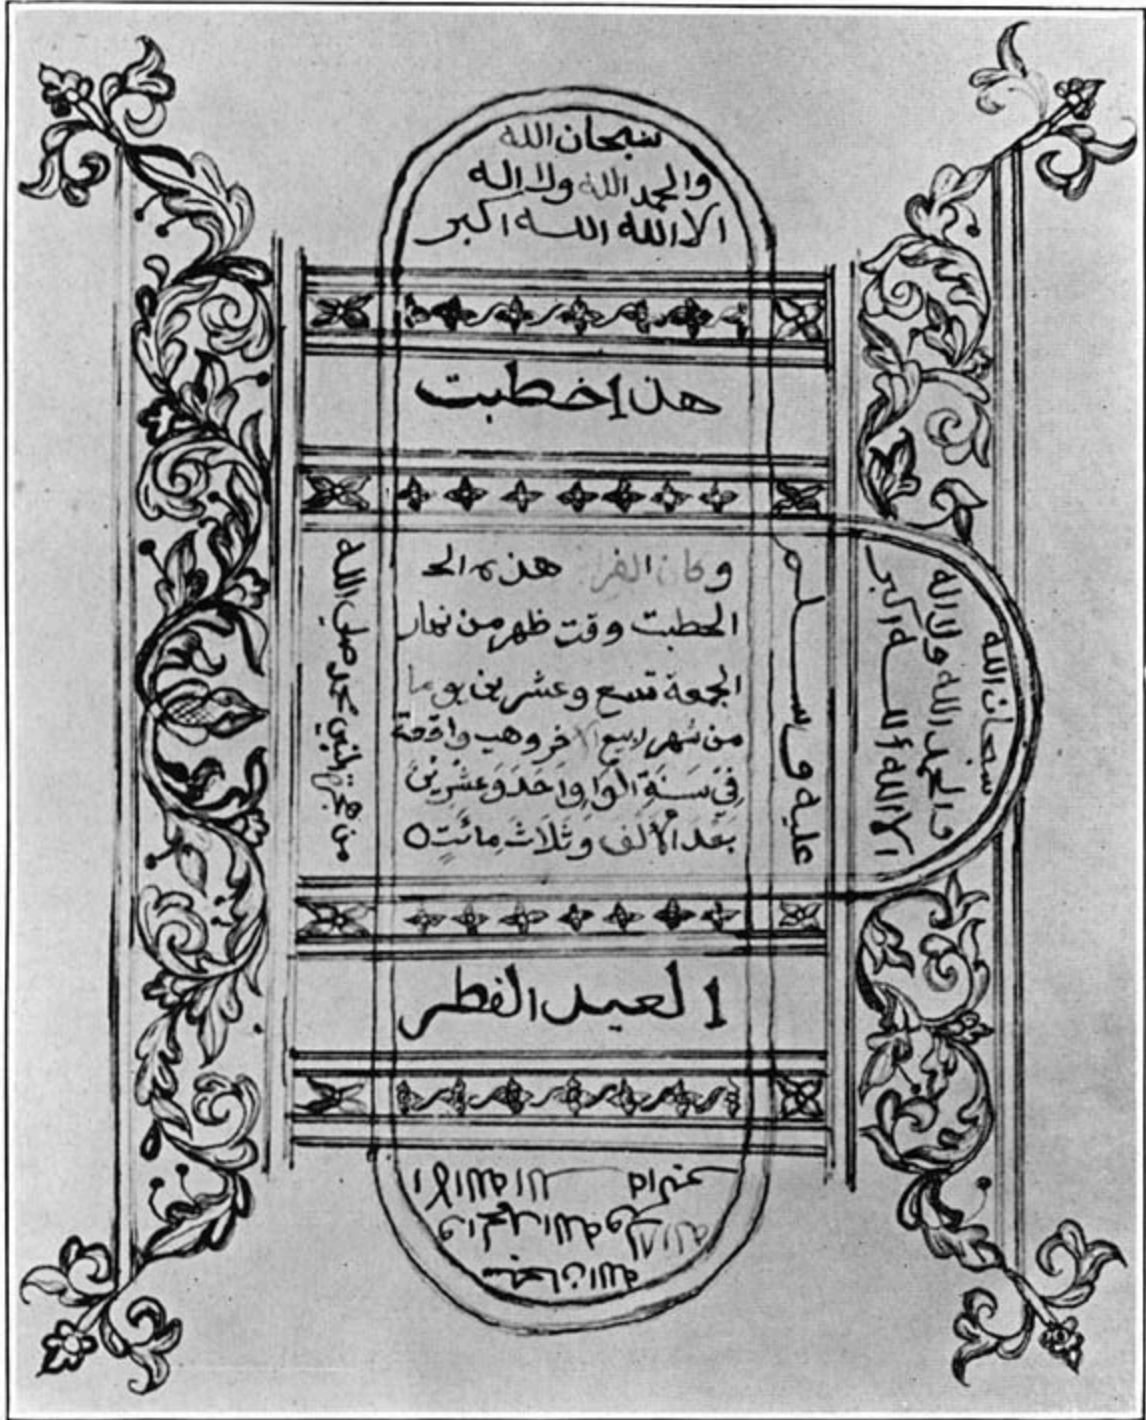 سبحان الله
والحمد الله ولا اله
الا الله الله اكبر
هذا خطبت
وكان الفرا هذه الخ
الخطبت وقت ظهر من نهار
الجمعة تسع وعشرين يوما
من شهر ربيع الاخر وهب واقعة
فِي سَنَةِ الوَا وَاحَدَ وَعَشْرِينَ
بَعْدَ الْأَلْف وَثَلَاثَ مِائَتٍ
من هجرة النبي محمد صلي الله
عليه وسلم
سبحان الله
والحمد الله ولا اله
الا الله أالله اكبر
العيد الفطر
سبحان الله
والحمد الله ولا اله
الا الله الله اكبر